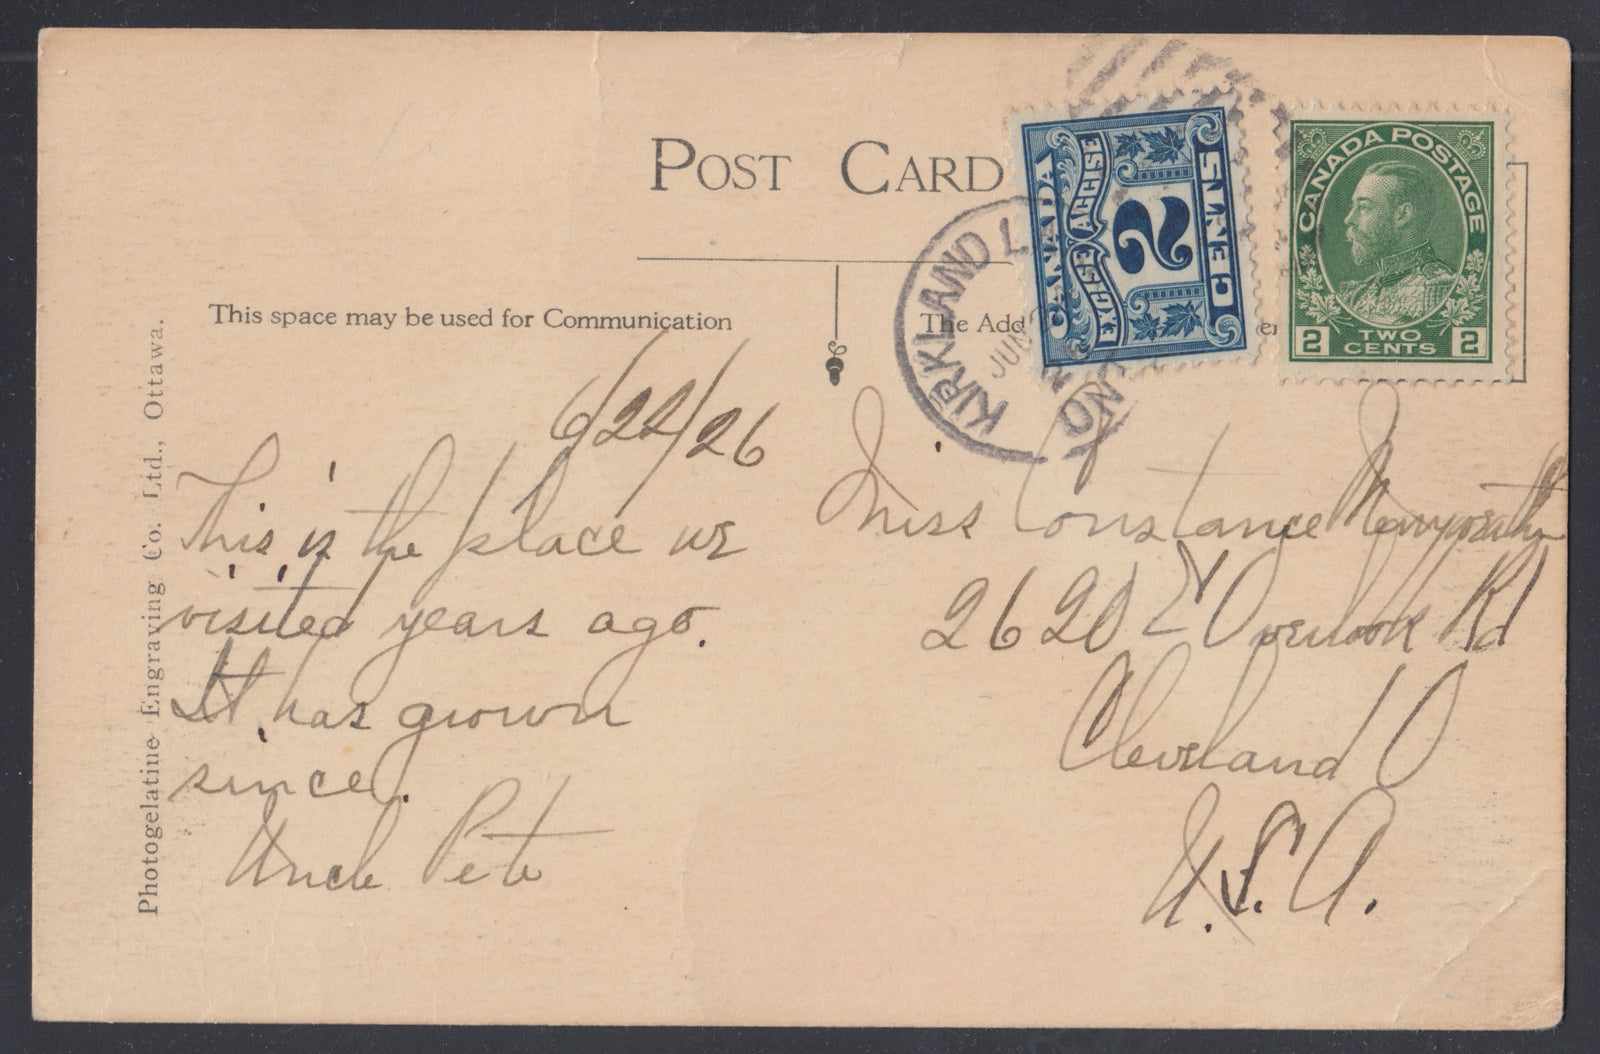 POST CARD
CANADA
EXCISE ACCISE
2
CENTS
CANADA POSTAGE
2 TWO CENTS 2
KIRKLAND L
JUN
ONT
This space may be used for Communication
The Add
Photogelatine Engraving Co. Ltd., Ottawa.
6/22/26
This is the place we
visited years ago.
It has grown
since.
Uncle Pete
Miss Constance
2620 E Overlook Rd
Cleveland O
U.S.A.